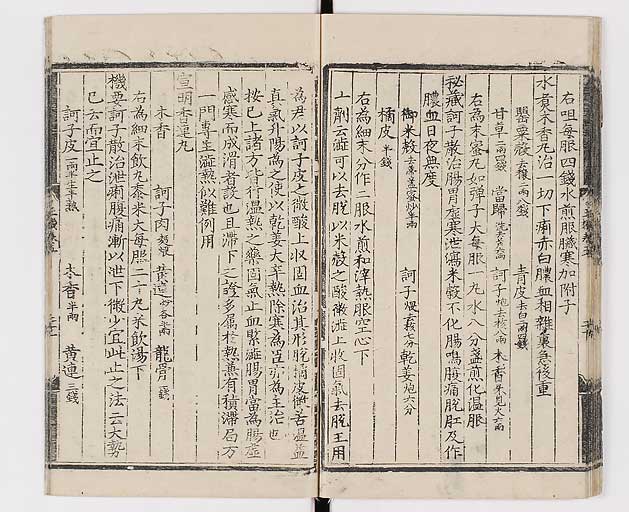 右㕮咀每服四錢水煎服臟寒加附子
水煮木香丸治一切下痢赤白膿血相雜裏急後重
罌粟殼 青皮去白二兩四錢
甘草二兩四錢 當歸 訶子炮去核六兩 木香不見火六兩
右為末蜜丸如彈子大每服一丸水八分盞煎化溫服
秘藏訶子散治腸胃虛寒泄瀉米穀不化腸鳴腹痛脫肛及作
膿血日夜無度
御米殼去蒂蓋蜜炒半兩 訶子煨去核七分 乾姜炮六分
橘皮半錢
右為細末分作二服水煎和滓熱服空心下
上劑云澁可以去脫以米殼之酸微澁上收固氣去脫主用
為君以訶子皮之微酸上收固血治其形脫橘皮微苦溫益
真氣升陽為之使以乾姜大辛熱除寒為臣亦為主治也
按已上諸方皆行溫熱之藥固氣止血緊澁腸胃富為腸虛
感寒而成滑者設也且滯下之證多屬於熱蒸有積滯局方
一門專主澁熱似難例用
宣明香連丸
木香 訶子肉 黃連 龍骨
右為細末飲丸黍米大每服二十丸米飲湯下
機要訶子散治泄痢腹痛漸以泄下微少宜此止之法云大勢
已去而宜止之
訶子皮一兩半生半熟 木香半兩 黃連三錢